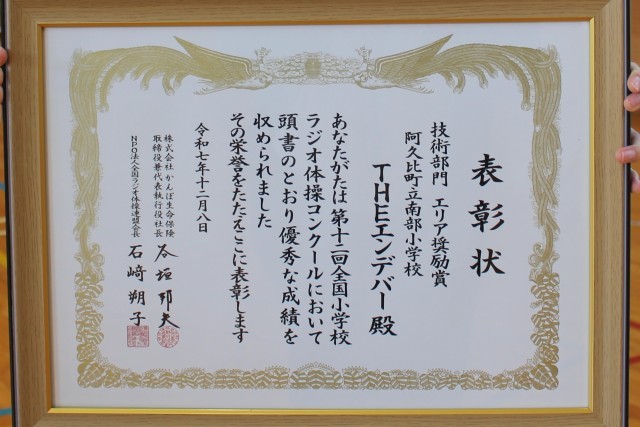 表彰状
技術部門 エリア奨励賞
阿久比町立南部小学校
THEエンデバー 殿
あなたがたは 第十二回全国小学校
ラジオ体操コンクールにおいて
頭書のとおり優秀な成績を
収められました
その栄誉をたたえここに表彰します
令和七年十二月八日
株式会社 かんぽ生命保険
取締役兼代表執行役社長 谷垣邦夫
NPO法人全国ラジオ体操連盟会長 石﨑朔子